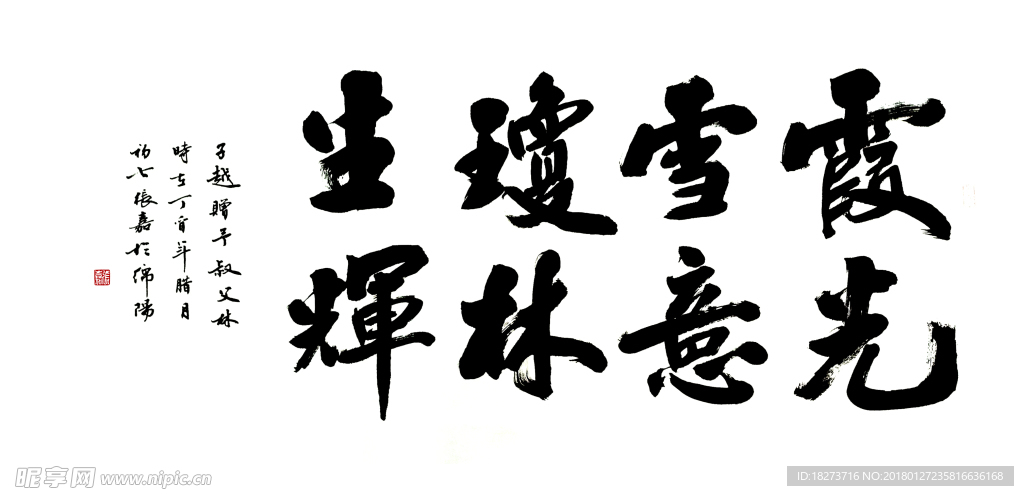 霞光
雪意
瓊林
生輝
子越贈予叔父林
時在丁酉年腊月
初七張嘉於綿陽
昵享网 www.nipic.cn
ID:18273716 NO:20180127235816636168